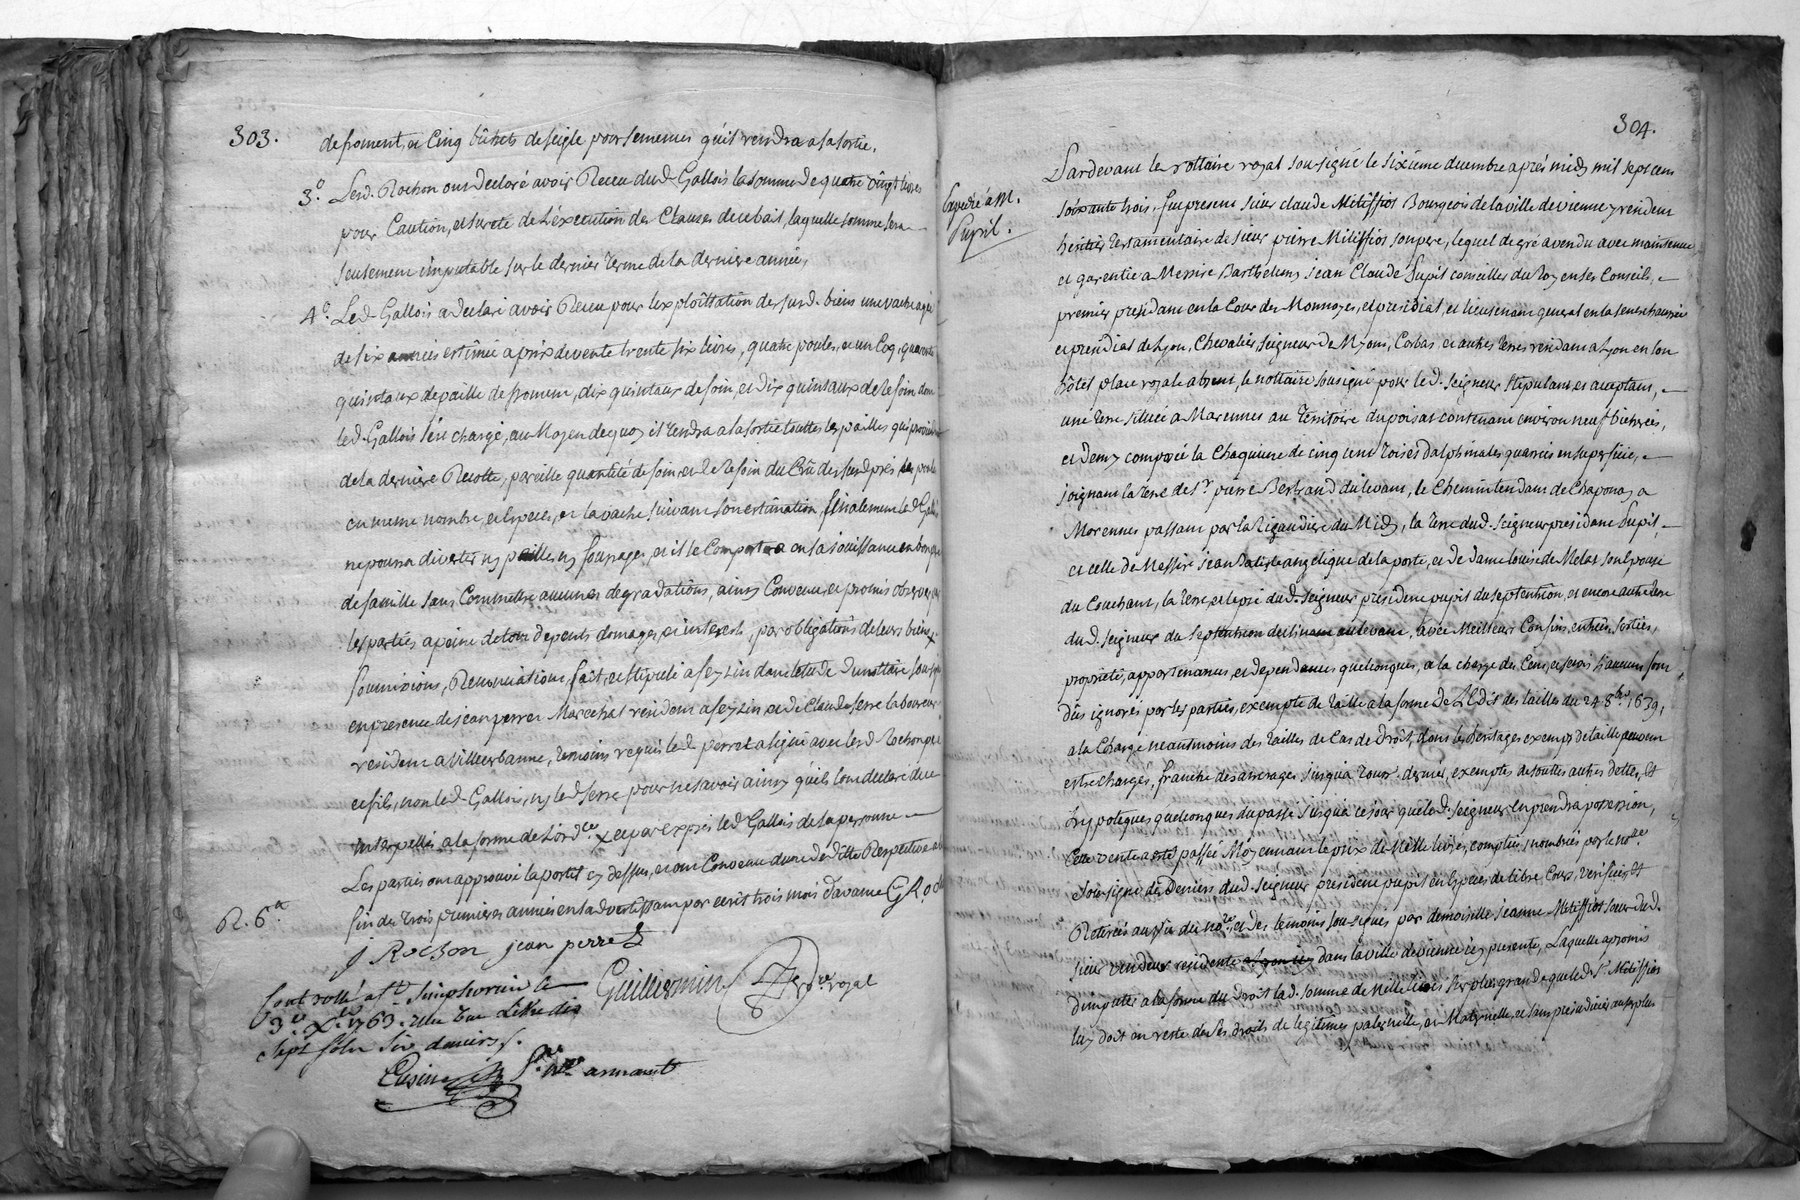 303.
de froment, et Cinq bichets de seigle pour semences qu'il rendra a sa sortie.
3.° Lesd. Rochon ont declaré avoir Receu dud. Gallois la somme de quatre vingt livres
pour Caution, et sureté de L'éxecution des Clauses de ce bail, laquelle somme sera
seulement imputable sur le dernier terme de la derniere année,
4.° Led. Gallois a declaré avoir Receu pour lexploittation des susd. biens une vache agée
de six années estimée a prix de vente trente six livres, quatre poules, et un Coq, quarante
quintaux de paille de froment, dix quintaux de foin, et dix quintaux de refoin dont
led. Gallois s'est chargé, au Moyen de quoy il rendra a la sortie touttes les pailles qui proviendront
de la derniere Recolte, pareille quantité de foin, et de refoin du Crû des susd. prés, les poules
en meme nombre, et Especes, et la vache suivant son estimation, finalement led. Gallois
ne pourra divertir ny pailles ny fourages, et il se Comportera en sa jouissance en bon pere
de famille sans Commettre aucunes degradations, ainsy Convenu, et promis observer par
les parties a peine de tous depents domages, et interets, par obligations de leurs biens,
soumissions, Renonciations, fait, et stipulé a feyzin dans letude du nottaire soussigné
en presence de jean perret Marechal resident a feyzin, et de Claude serre laboureur
resident a villeurbanne, temoins requis led. perret a signé avec lesd. Rochon pere
et fils, non led. Gallois, ny led. serre pour ne savoir ainsy qu'ils l'ont declaré de ce
interpellés a la forme de Lord.ce x et par exprès led. Gallois de sa personne
Les parties ont approuvé la portét cy dessus, et sont Convenu dune deditte Respective a la
fin des trois premieres années en s'advertissant par écrit trois mois d'avance G R. o d
R. 6.a
J Rochon jean perret
Guillermin Nre. royal
Controllé a St. Simphorien le
3.e X.bre 1763.
sept sols six deniers.
304.
Expedié à M.
Pupil.
Pardevant le nottaire royal soussigné le sixiéme decembre après midy mil sept cent
soixante trois, fut present sieur claude Métiffiot Bourgeois de la ville de vienne y resident
heritier testamentaire de sieur pierre Métiffiot son pere, lequel de gré a vendu avec maintenue
et garentie a Messire Barthelemy jean Claude Pupil conseiller du Roy en ses Conseils,
premier president en la Cour des Monnoyes, et presidial, et lieutenant general en la senechaussée
et presidial de Lyon, Chevalier, seigneur de Myons, Corbas et autres terres resident a Lyon en son
hôtel place royale absent, le nottaire soussigné pour led. seigneur stipulant et acceptant,
une terre située a Marennes au territoire du poisat contenant environ neuf bicherées,
et demy composée la Chaquune de cinq cent toises dalphinales quarrées en superficie,
joignant la terre de s.r pierre Bertrand du levant, le Chemin tendant de Chaponay a
Morennes passant par la Rigaudiere du Midy, la terre dud. seigneur president Pupil,
et celle de Messire jean Batiste angelique de la porte, et de dame louise de Melat son Epouse
du Couchant, la terre et le pré dud. seigneur president pupil du septention, et encore autre terre
dud. seigneur du septentrion declinant au levant, avec Meilleurs Confins, entrées, sorties,
proprieté, appartenances, et dependances quelconques, a la charge des Cens, et servis si aucuns sont
dûs ignorés par les parties, exempte de taille a la forme de L'Edit des tailles du 24 8.bre 1639,
a la Charge neantmoins des tailles de Cas de droit, dont les heritages exempts de taille peuvent
estre chargés, franche des arrerages jusqu'a Jour. dernier, exemptes de touttes autres dettes, Et
hypoteques quelconques du passé jusqué ce jour que led. seigneur en prendra possession,
Cette vente a eté passée Moyennant le prix de Mille livres, comptées, nombrées par le no.re
soussigné des Deniers dud. seigneur president pupil en Especes de libre Cours, verifiées, Et
Retirées au vû du no.re, et des temoins soussignés par demoiselle jeanne Métiffiot sœur dud.
sieur vendeur residente dans la ville de vienne icy presente, Laquelle a promis
d'imputer a la forme du Droit lad. somme de Mille livres sur plus grande que led. s.r Métiffiot
luy doit en reste de ses droits de legitimes paternelle, et Maternelle, et sans prejudice au surplus